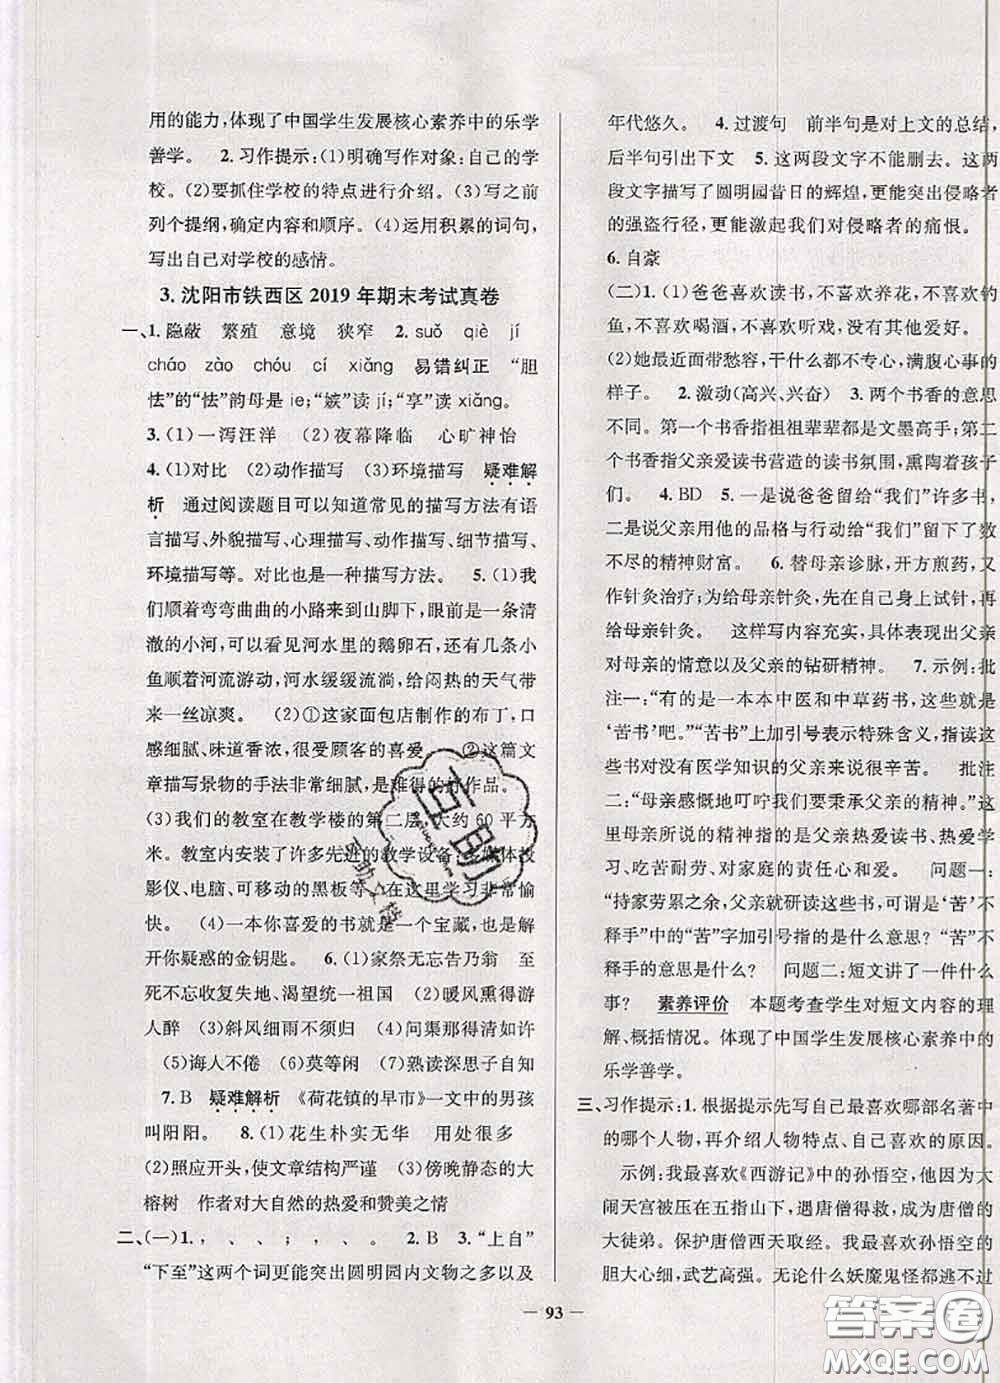 用的能力,体现了中国学生发展核心素养中的乐学
善学。 2. 习作提示:(1)明确写作对象:自己的学
校。(2)要抓住学校的特点进行介绍。(3)写之前
列个提纲,确定内容和顺序。(4)运用积累的词句,
写出自己对学校的感情。
3. 沈阳市铁西区 2019 年期末考试真卷
一、1. 隐蔽 繁殖 意境 狭窄 2. suǒ qiè jí
cháo zào chóu cí xiǎng 易错纠正 “胆
怯”的“怯”韵母是 ie;“嫉”读 jí;“享”读 xiǎng。
3. (1)一泻汪洋 (2)夜幕降临 心旷神怡
4. (1)对比 (2)动作描写 (3)环境描写 疑难解
析 通过阅读题目可以知道常见的描写方法有语
言描写、外貌描写、心理描写、动作描写、细节描写、
环境描写等。对比也是一种描写方法。 5. (1)我
们顺着弯弯曲曲的小路来到山脚下,眼前是一条清
澈的小河,可以看见河水里的鹅卵石,还有几条小
鱼随着河流游动,河水缓缓流淌,给闷热的天气带
来一丝凉爽。 (2)①这家面包店制作的布丁,口
感细腻、味道香浓,很受顾客的喜爱。 ②这篇文
章描写景物的手法非常细腻,是难得的好作品。
(3)我们的教室在教学楼的第二层,大约 60 平方
米。教室内安装了许多先进的教学设备:多媒体投
影仪、电脑、可移动的黑板等,在这里学习非常愉
快。 (4)一本你喜爱的书就是一个宝藏,也是解
开你疑惑的金钥匙。 6. (1)家祭无忘告乃翁 至
死不忘收复失地、渴望统一祖国 (2)暖风熏得游
人醉 (3)斜风细雨不须归 (4)问渠那得清如许
(5)诲人不倦 (6)莫等闲 (7)熟读深思子自知
7. B 疑难解析 《荷花镇的早市》一文中的男孩
叫阳阳。 8. (1)花生朴实无华 用处很多
(2)照应开头,使文章结构严谨 (3)傍晚静态的大
榕树 作者对大自然的热爱和赞美之情
二、(一)1. , 、 、 ; , 、 。 2. B 3. “上自”
“下至”这两个词更能突出圆明园内文物之多以及
年代悠久。 4. 过渡句 前半句是对上文的总结,
后半句引出下文 5. 这两段文字不能删去。这两
段文字描写了圆明园昔日的辉煌,更能突出侵略者
的强盗行径,更能激起我们对侵略者的痛恨。
6. 自豪
(二)1. (1)爸爸喜欢读书,不喜欢养花,不喜欢钓
鱼,不喜欢喝酒,不喜欢听戏,没有其他爱好。
(2)她最近面带愁容,干什么都不专心,满腹心事的
样子。 2. 激动(高兴、兴奋) 3. 两个书香的意思
不同。第一个书香指祖祖辈辈都是文墨高手;第二
个书香指父亲爱读书营造的读书氛围,熏陶着孩子
们。 4. BD 5. 一是说爸爸留给“我们”许多书,
二是说父亲用他的品格与行动给“我们”留下了数
不尽的精神财富。 6. 替母亲诊脉,开方煎药,又
作针灸治疗;为给母亲针灸,先在自己身上试针,再
给母亲针灸。 这样写内容充实,具体表现出父亲
对母亲的情意以及父亲的钻研精神。 7. 示例:批
注一:“有的是一本本中医和中草药书,这些就是
‘苦书’吧。”“苦书”上加引号表示特殊含义,看懂
这些书对没有医学知识的父亲来说很辛苦。 批注
二:“母亲感慨地叮咛我们要秉承父亲的精神。”这
里母亲所说的精神指的是父亲热爱读书、热爱学
习、吃苦耐劳、对家庭的责任心和爱。 问题一:
“持家劳累之余,父亲就研读这些书,可谓‘苦’不
释手”中的“苦”字加引号指的是什么意思?“苦”不
释手的意思是什么? 问题二:短文讲了一件什么
事? 素养评价 本题考查学生对短文内容的理
解、概括情况。体现了中国学生发展核心素养中的
乐学善学。
三、习作提示:1. 根据提示先写自己最喜欢哪部名著中
的哪个人物,再介绍人物特点、自己喜欢的原因。
示例:我最喜欢《西游记》中的孙悟空,他因大
闹天宫被压在五指山下,遇唐僧得救,成为唐僧的
大徒弟。保护唐僧西天取经。我最喜欢孙悟空的
胆大心细,武艺高强。无论什么妖魔鬼怪都逃不过
— 93 —
互助
答案卷
MXQE.COM